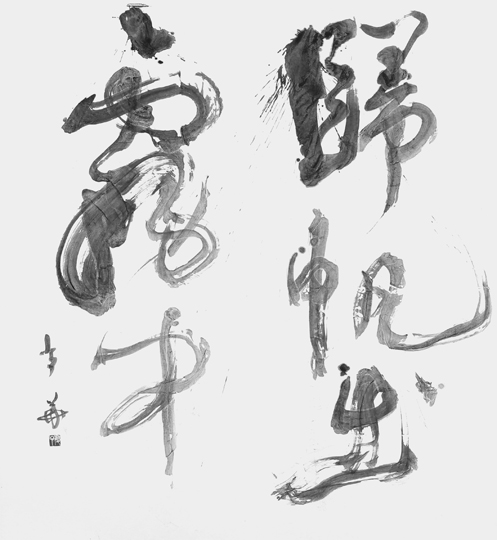 歸帆出
霧中